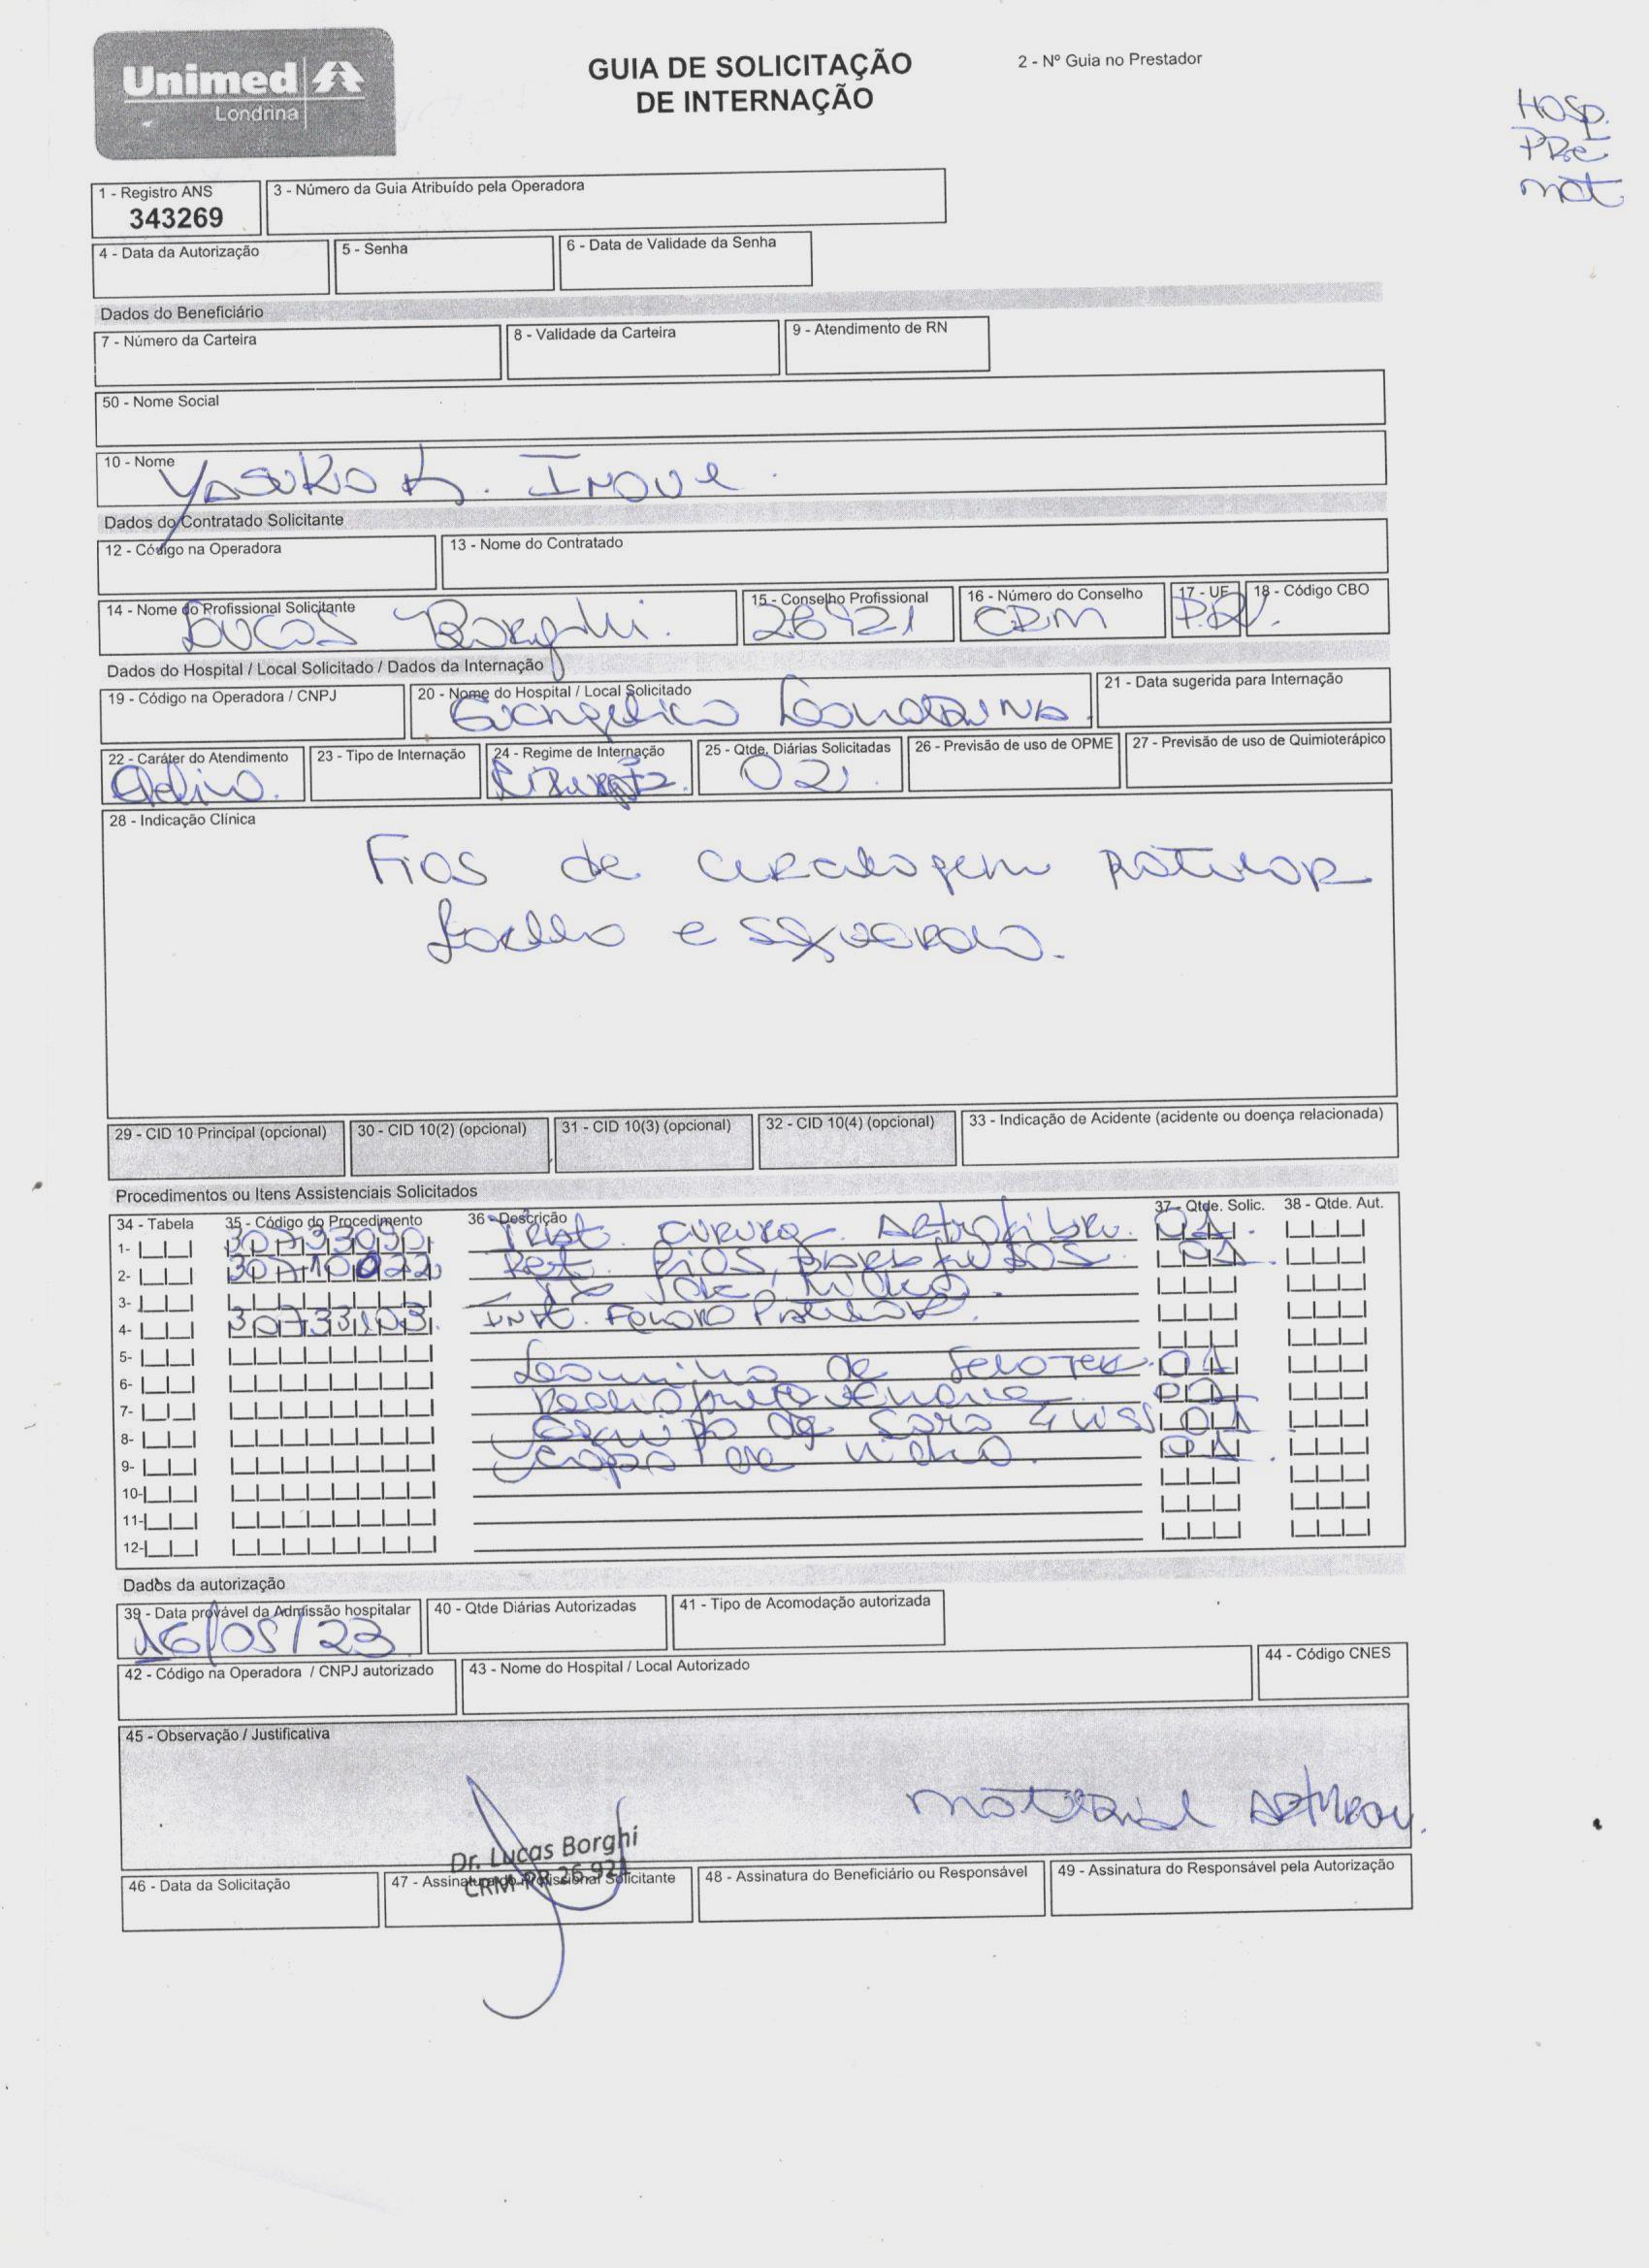 Unimed
Londrina
GUIA DE SOLICITAÇÃO
DE INTERNAÇÃO
2 - Nº Guia no Prestador
Hosp.
PRe
mat
1 - Registro ANS
343269
3 - Número da Guia Atribuído pela Operadora
4 - Data da Autorização
5 - Senha
6 - Data de Validade da Senha
Dados do Beneficiário
7 - Número da Carteira
8 - Validade da Carteira
9 - Atendimento de RN
50 - Nome Social
10 - Nome
Yasuko K. Inoue.
Dados do Contratado Solicitante
12 - Código na Operadora
13 - Nome do Contratado
14 - Nome do Profissional Solicitante
Lucas Borghi.
15 - Conselho Profissional
26921
16 - Número do Conselho
CRM
17 - UF
PR.
18 - Código CBO
Dados do Hospital / Local Solicitado / Dados da Internação
19 - Código na Operadora / CNPJ
20 - Nome do Hospital / Local Solicitado
Evangelico Londrina
21 - Data sugerida para Internação
22 - Caráter do Atendimento
23 - Tipo de Internação
24 - Regime de Internação
25 - Qtde. Diárias Solicitadas
02
26 - Previsão de uso de OPME
27 - Previsão de uso de Quimioterápico
28 - Indicação Clínica
Fios de cerclagem patelar
Joelho esquerdo.
29 - CID 10 Principal (opcional)
30 - CID 10(2) (opcional)
31 - CID 10(3) (opcional)
32 - CID 10(4) (opcional)
33 - Indicação de Acidente (acidente ou doença relacionada)
Procedimentos ou Itens Assistenciais Solicitados
34 - Tabela
35 - Código do Procedimento
36 - Descrição
37 - Qtde. Solic.
38 - Qtde. Aut.
1- 30733090 Trat. Cirurg. Artrofibr. 01.
2- 30710022 Ret. Fios, parafusos 01.
3-
4- 30733103. Inst. Femoro Patelar.
5-
6- de 01
7- Radiofrequencia 01
8- Equipo de soro 4 vias 01
9- 01.
10-
11-
12-
Dados da autorização
39 - Data provável da Admissão hospitalar
16/05/23
40 - Qtde Diárias Autorizadas
41 - Tipo de Acomodação autorizada
42 - Código na Operadora / CNPJ autorizado
43 - Nome do Hospital / Local Autorizado
44 - Código CNES
45 - Observação / Justificativa
Material
Dr. Lucas Borghi
CRM-PR 26.921
46 - Data da Solicitação
47 - Assinatura do Profissional Solicitante
48 - Assinatura do Beneficiário ou Responsável
49 - Assinatura do Responsável pela Autorização